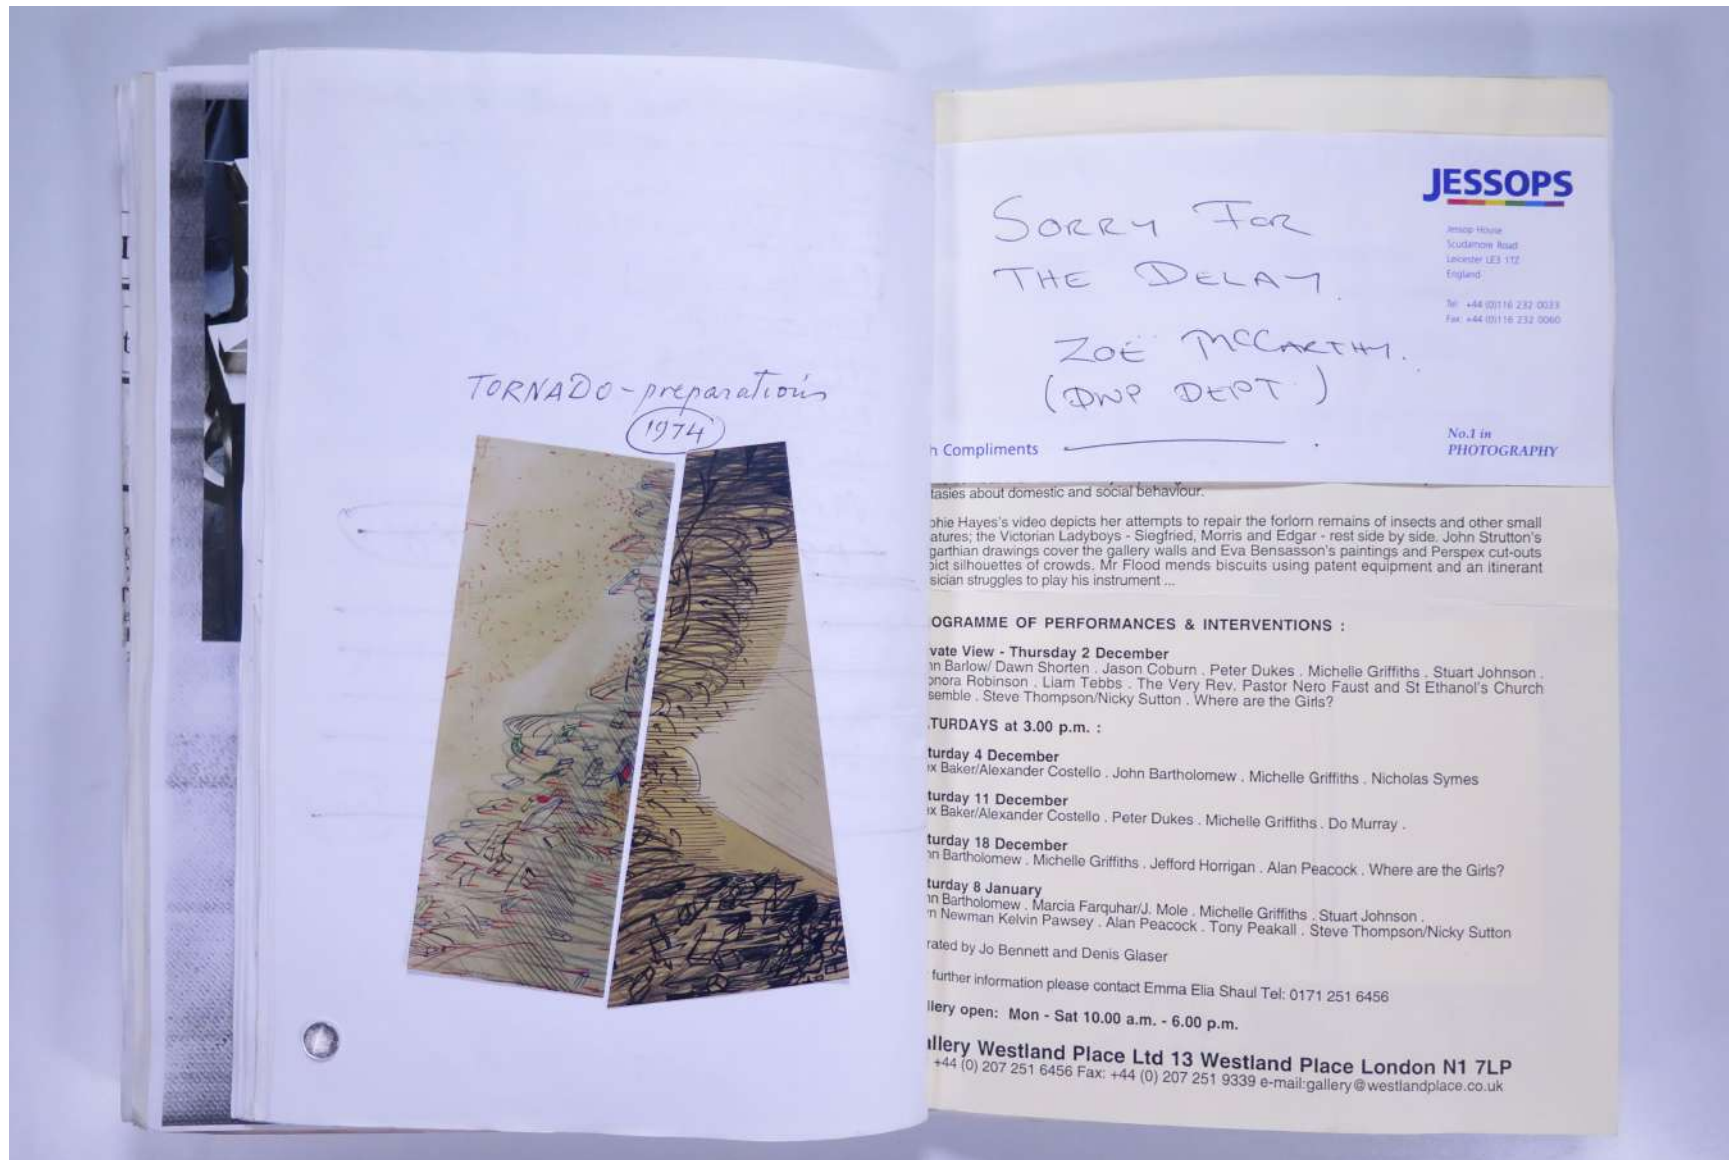 TORNADO - preparations
1974
JESSOPS
Jessop House
Scudamore Road
Leicester LE3 1TZ
England
Tel: +44 (0)116 232 0033
Fax: +44 (0)116 232 0060
SORRY FOR
THE DELAY.
ZOË MCCARTHY.
(DWP DEPT.)
h Compliments
No.1 in
PHOTOGRAPHY
tasies about domestic and social behaviour.
phie Hayes's video depicts her attempts to repair the forlorn remains of insects and other small
atures; the Victorian Ladyboys - Siegfried, Morris and Edgar - rest side by side. John Strutton's
garthian drawings cover the gallery walls and Eva Bensasson's paintings and Perspex cut-outs
pict silhouettes of crowds. Mr Flood mends biscuits using patent equipment and an itinerant
sician struggles to play his instrument ...
OGRAMME OF PERFORMANCES & INTERVENTIONS :
vate View - Thursday 2 December
nn Barlow/ Dawn Shorten . Jason Coburn . Peter Dukes . Michelle Griffiths . Stuart Johnson .
onora Robinson . Liam Tebbs . The Very Rev. Pastor Nero Faust and St Ethanol's Church
semble . Steve Thompson/Nicky Sutton . Where are the Girls?
TURDAYS at 3.00 p.m. :
turday 4 December
x Baker/Alexander Costello . John Bartholomew . Michelle Griffiths . Nicholas Symes
turday 11 December
x Baker/Alexander Costello . Peter Dukes . Michelle Griffiths . Do Murray .
turday 18 December
nn Bartholomew . Michelle Griffiths . Jefford Horrigan . Alan Peacock . Where are the Girls?
turday 8 January
nn Bartholomew . Marcia Farquhar/J. Mole . Michelle Griffiths . Stuart Johnson .
n Newman Kelvin Pawsey . Alan Peacock . Tony Peakall . Steve Thompson/Nicky Sutton
rated by Jo Bennett and Denis Glaser
further information please contact Emma Elia Shaul Tel: 0171 251 6456
llery open: Mon - Sat 10.00 a.m. - 6.00 p.m.
allery Westland Place Ltd 13 Westland Place London N1 7LP
+44 (0) 207 251 6456 Fax: +44 (0) 207 251 9339 e-mail:gallery@westlandplace.co.uk